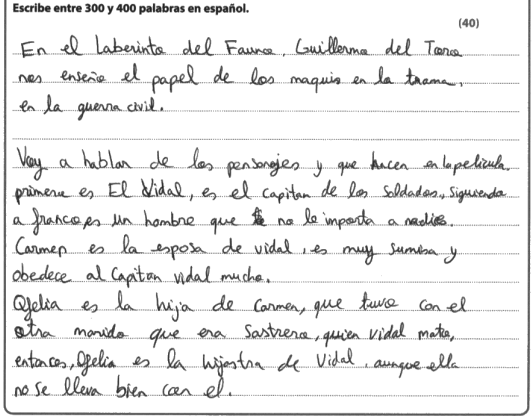 Escribe entre 300 y 400 palabras en español.
(40)
En el Laberinto del Fauno, Guillermo del Toro
nos enseña el papel de los maquis en la trama,
en la guerra civil.
Voy a hablar de los personajes y que hacen en la pelicula.
primero es El Vidal, es el capitan de los Soldados, siguiendo
a franco, es un hombre que no le importa a nadie.
Carmen es la esposa de vidal, es muy sumisa y
obedece al Capitan vidal mucho.
Ofelia es la hija de Carmen, que tuvo con el
otro marido que era Sastrero, quien vidal mato,
entonces, Ofelia es la hijastra de Vidal, aunque ella
no se lleva bien con el.